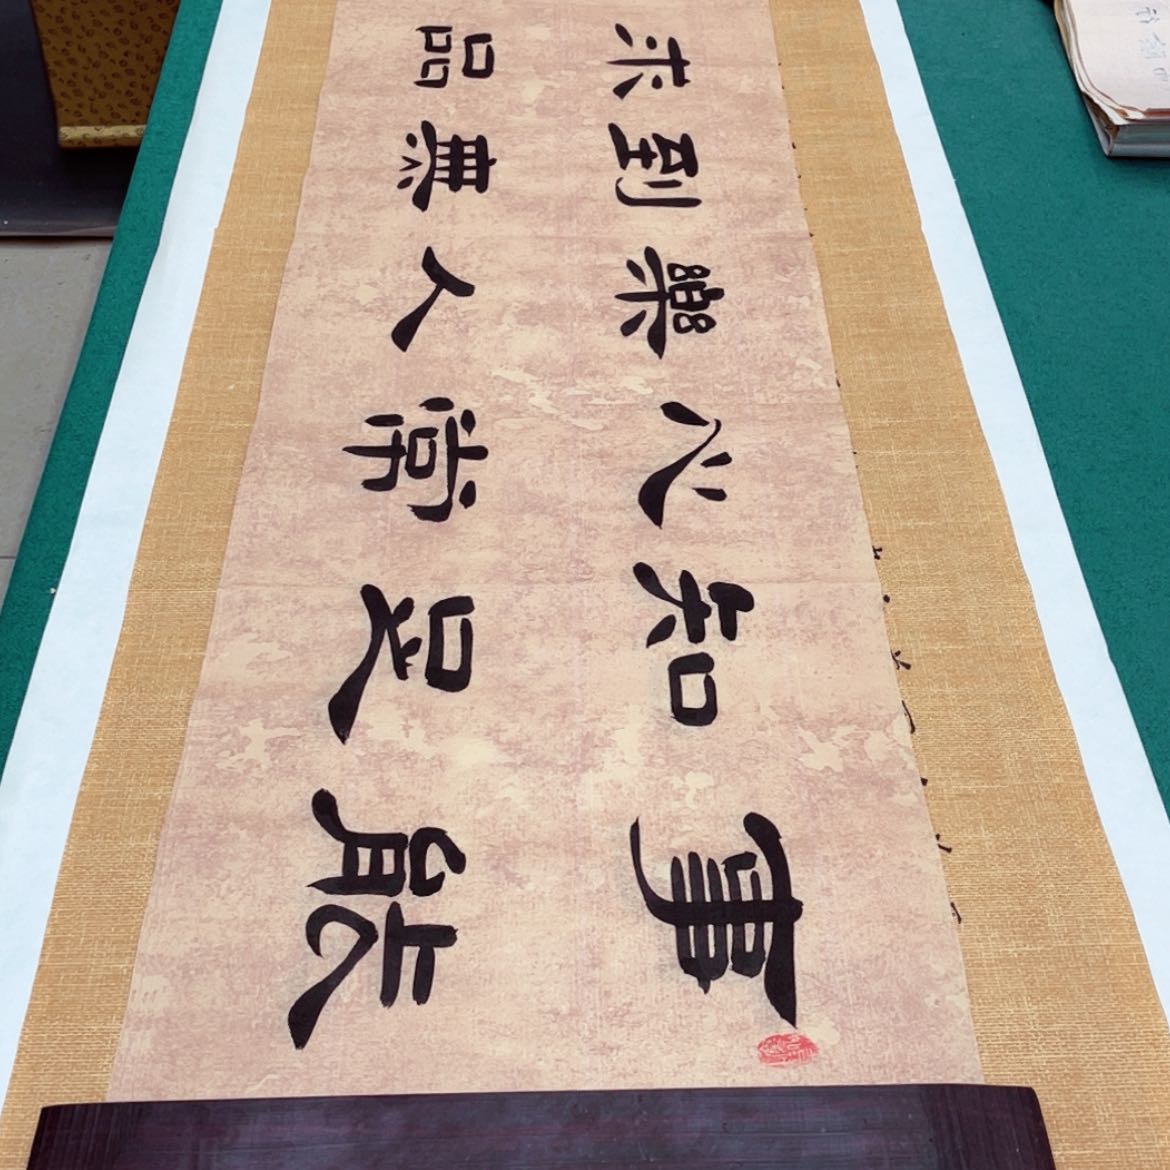 事能
知足
心常
樂人
到無
求品